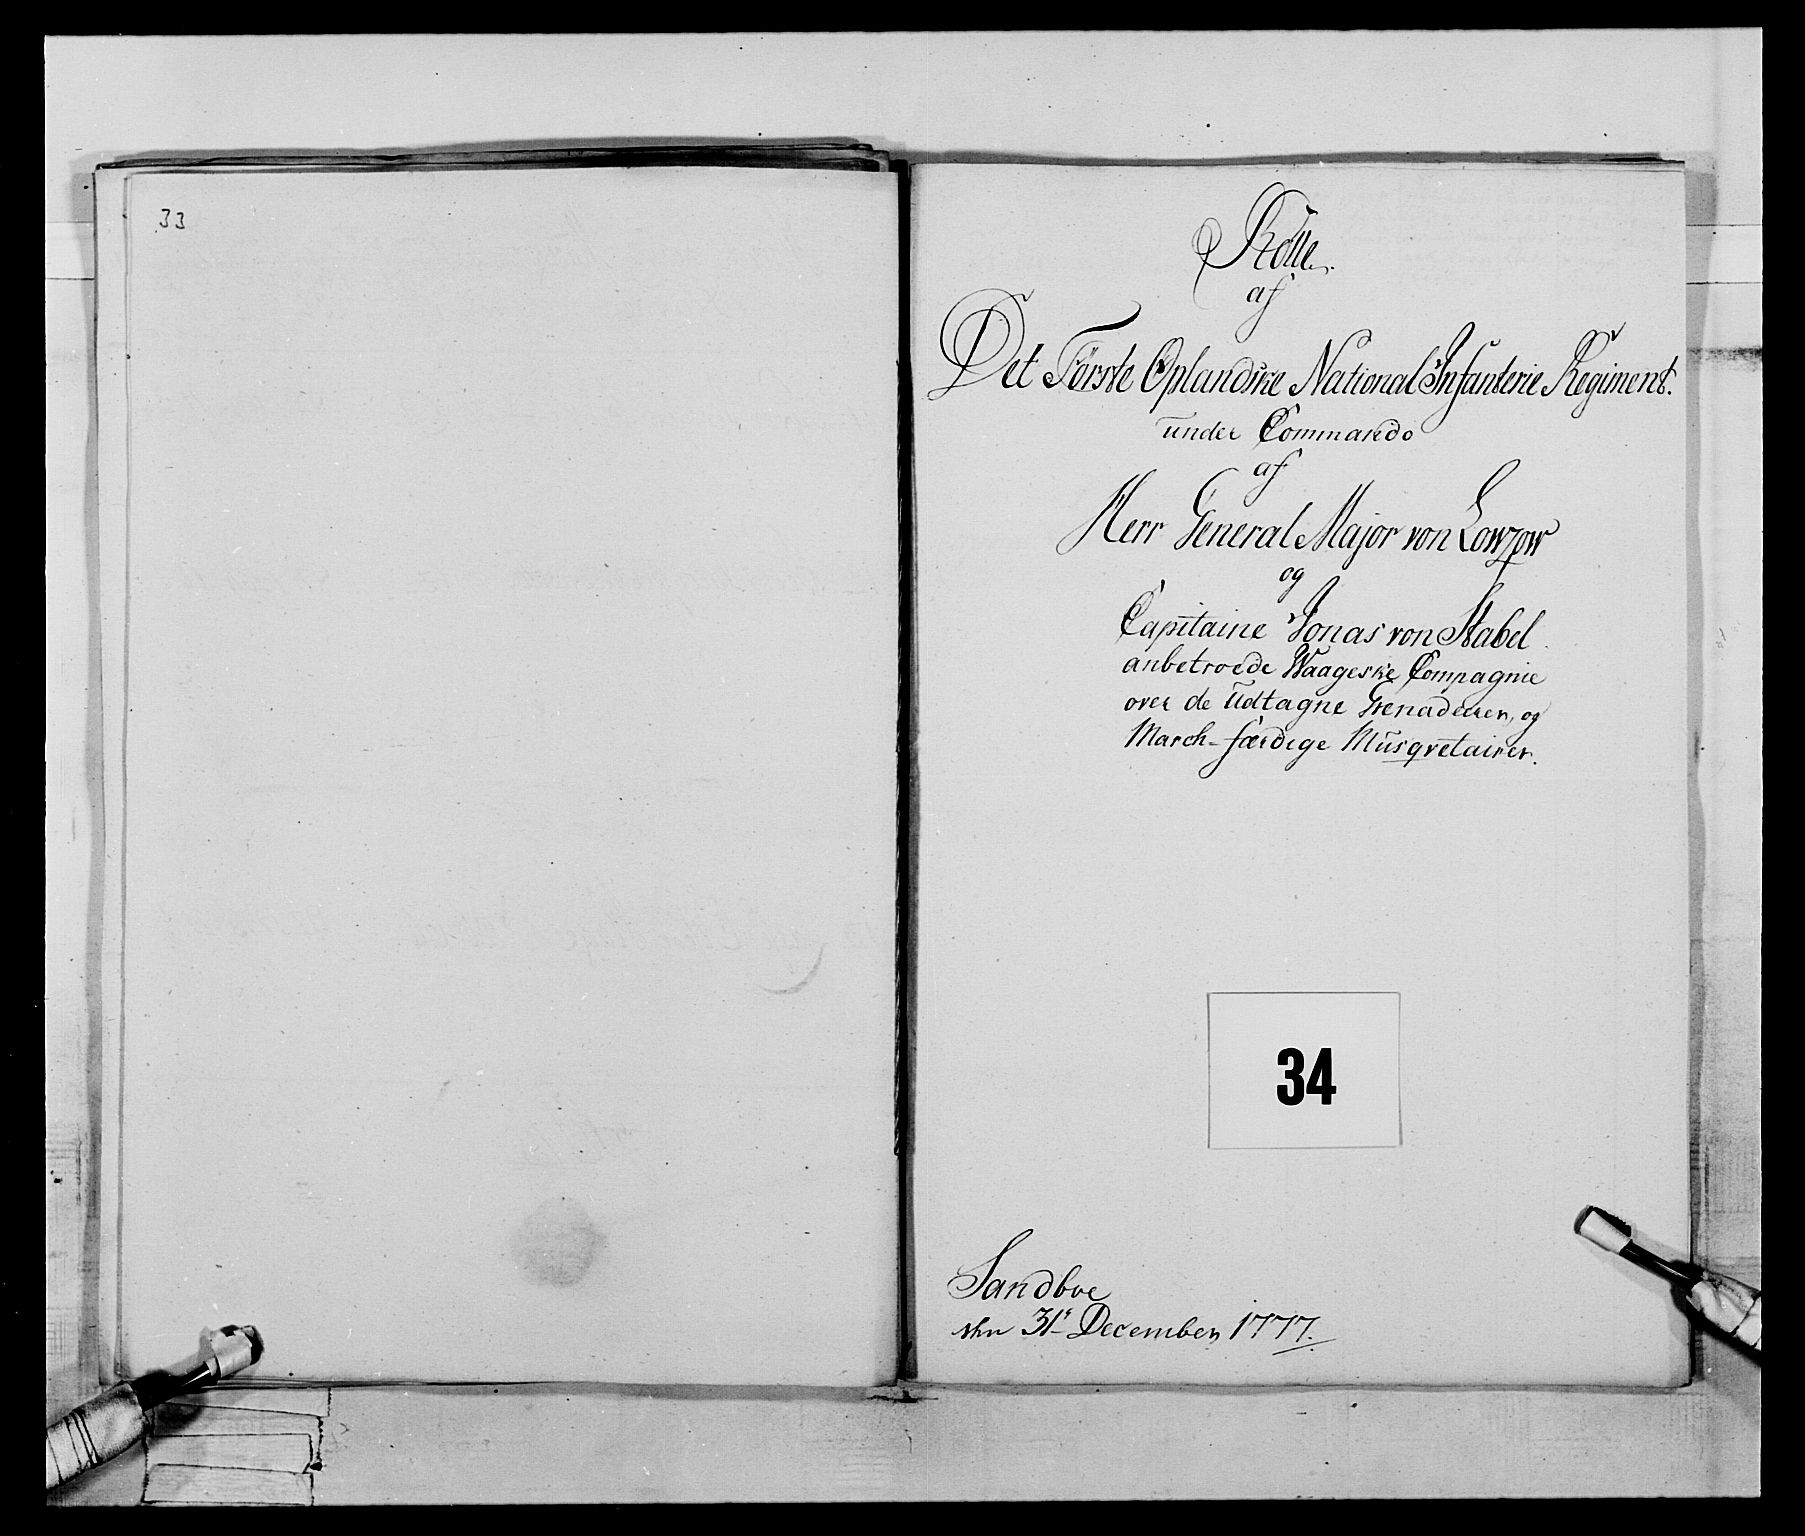 33
Rolle.
af
Det Første Oplandske National Infanterie Regiment.
under Commando
af
Herr General Major von Lowzow
og
Capitaine Jonas von Stabel
anbetroede Waageske Compagnie
over de udtagne Grenaderer, og
March-færdige Musqvetairer.
34
Sandboe
den 31t December 1777.